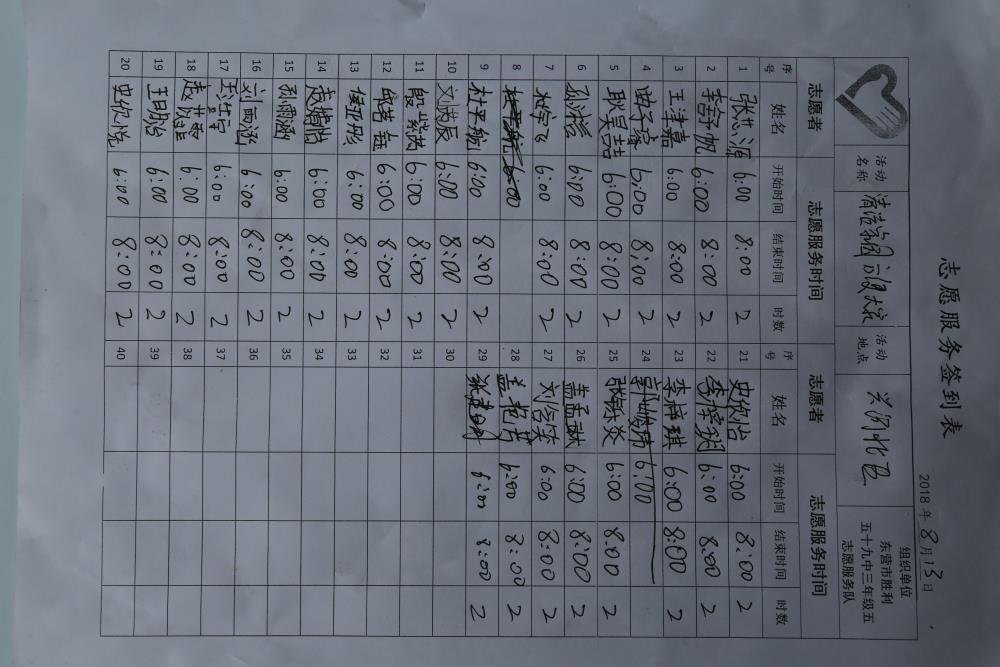 志愿服务签到表
2018年8月13日
活动名称 清洁家园 活动地点 兴河北区 组织单位 东营市胜利五十九中三年级五志愿服务队
志愿者 志愿服务时间 志愿者 志愿服务时间
序号 姓名 开始时间 结束时间 时数 序号 姓名 开始时间 结束时间 时数
1 张芯源 6:00 8:00 2 21 史欣怡 6:00 8:00 2
2 李舒帆 6:00 8:00 2 22 6:00 8:00 2
3 王津嘉 6:00 8:00 2 23 李梓琪 6:00 8:00 2
4 6:00 8:00 2 24 6:00
5 耿昊喆 6:00 8:00 2 25 6:00 8:00 2
6 6:00 8:00 2 26 盖孟琳 6:00 8:00 2
7 6:00 8:00 2 27 刘含笑 6:00 8:00 2
8 6:00 28 6:00 8:00 2
9 杜平航 6:00 8:00 2 29 6:00 8:00 2
10 刘洪辰 6:00 8:00 2 30
11 殷 6:00 8:00 2 31
12 6:00 8:00 2 32
13 侯亚彤 6:00 8:00 2 33
14 6:00 8:00 2 34
15 雨涵 6:00 8:00 2 35
16 刘雨涵 6:00 8:00 2 36
17 6:00 8:00 2 37
18 赵 6:00 8:00 2 38
19 王明怡 6:00 8:00 2 39
20 史欣悦 6:00 8:00 2 40